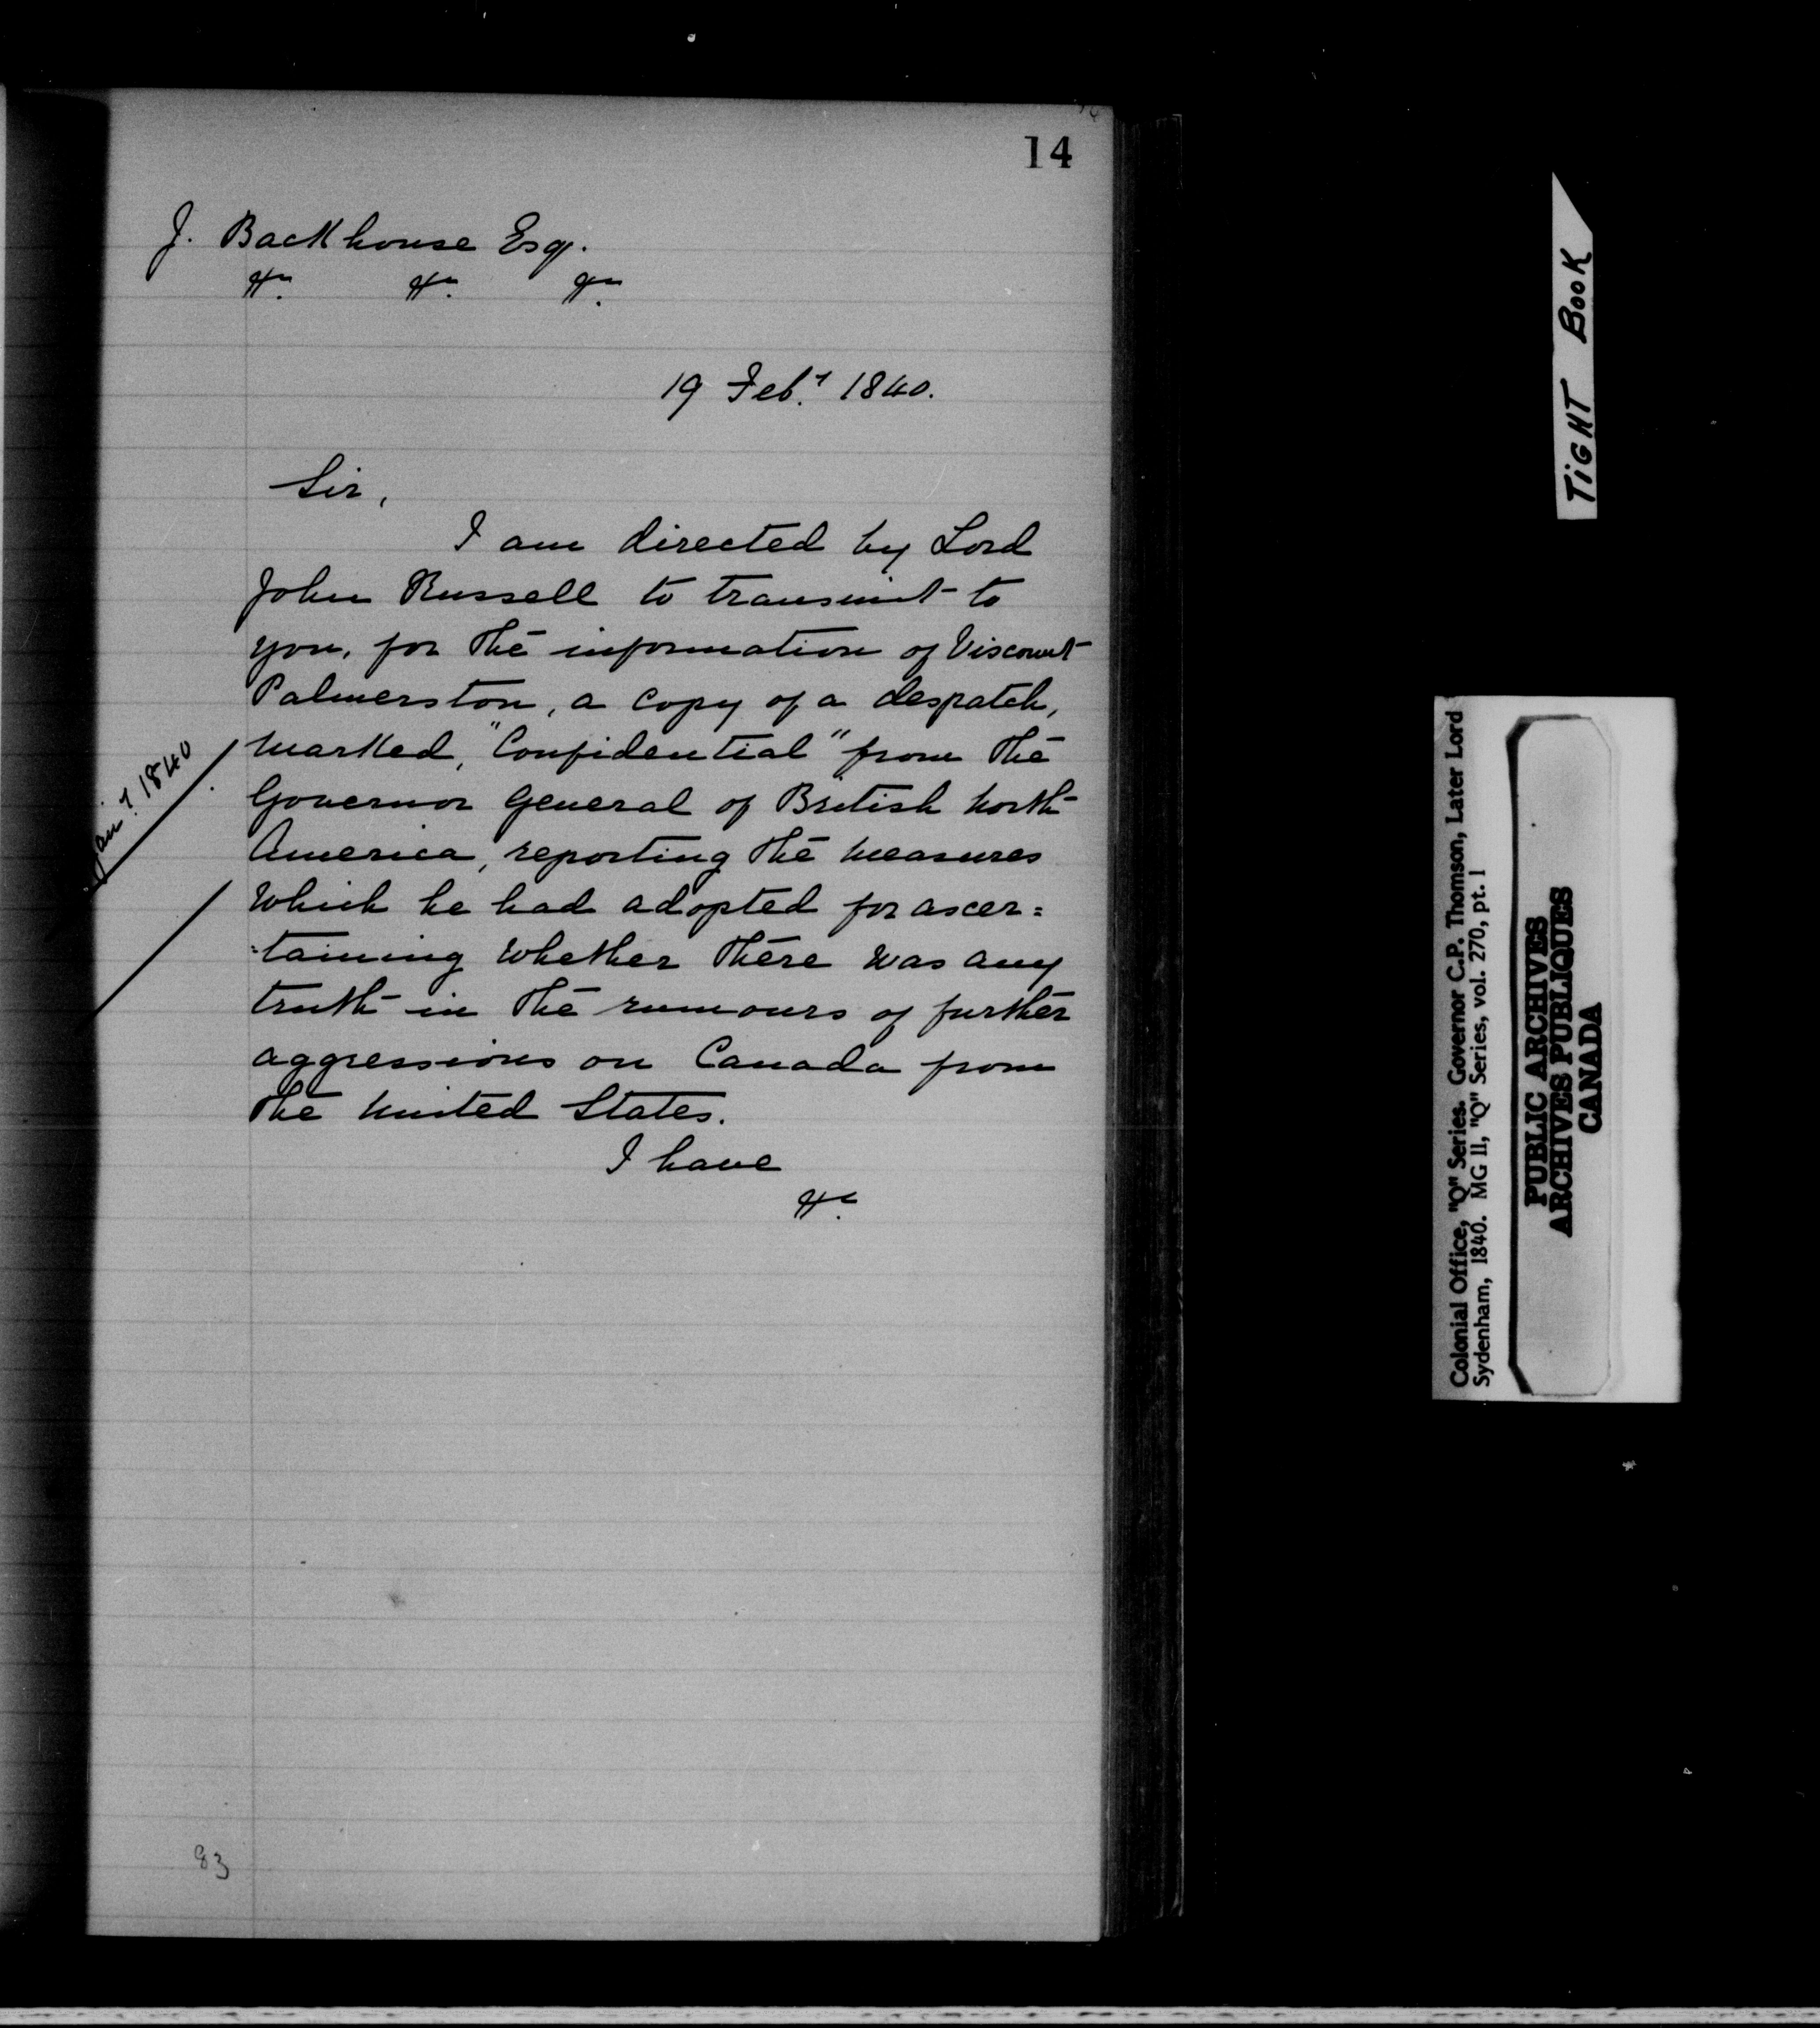 14
J. Backhouse Esqr.
&c. &c. &c.
19 Feb.y 1840.
Sir,
I am directed by Lord
John Russell to transmit to
you, for the information of Viscount
Palmerston, a copy of a despatch,
marked, "Confidential" from the
Governor General of British North
America, reporting the measures
which he had adopted for ascer=
=taining whether there was any
truth in the rumours of further
aggressions on Canada from
the United States.
I have
&c.
Jan.y 1840
83
TIGHT BOOK
Colonial Office, "Q" Series. Governor C.P. Thomson, Later Lord
Sydenham, 1840. MG 11, "Q" Series, vol. 270, pt. 1
PUBLIC ARCHIVES
ARCHIVES PUBLIQUES
CANADA